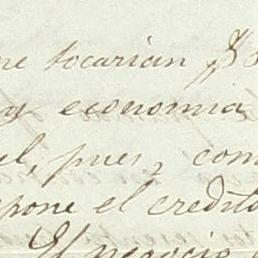 me tocarian $
y economia
el, pues, com
pone el credito
El negocio